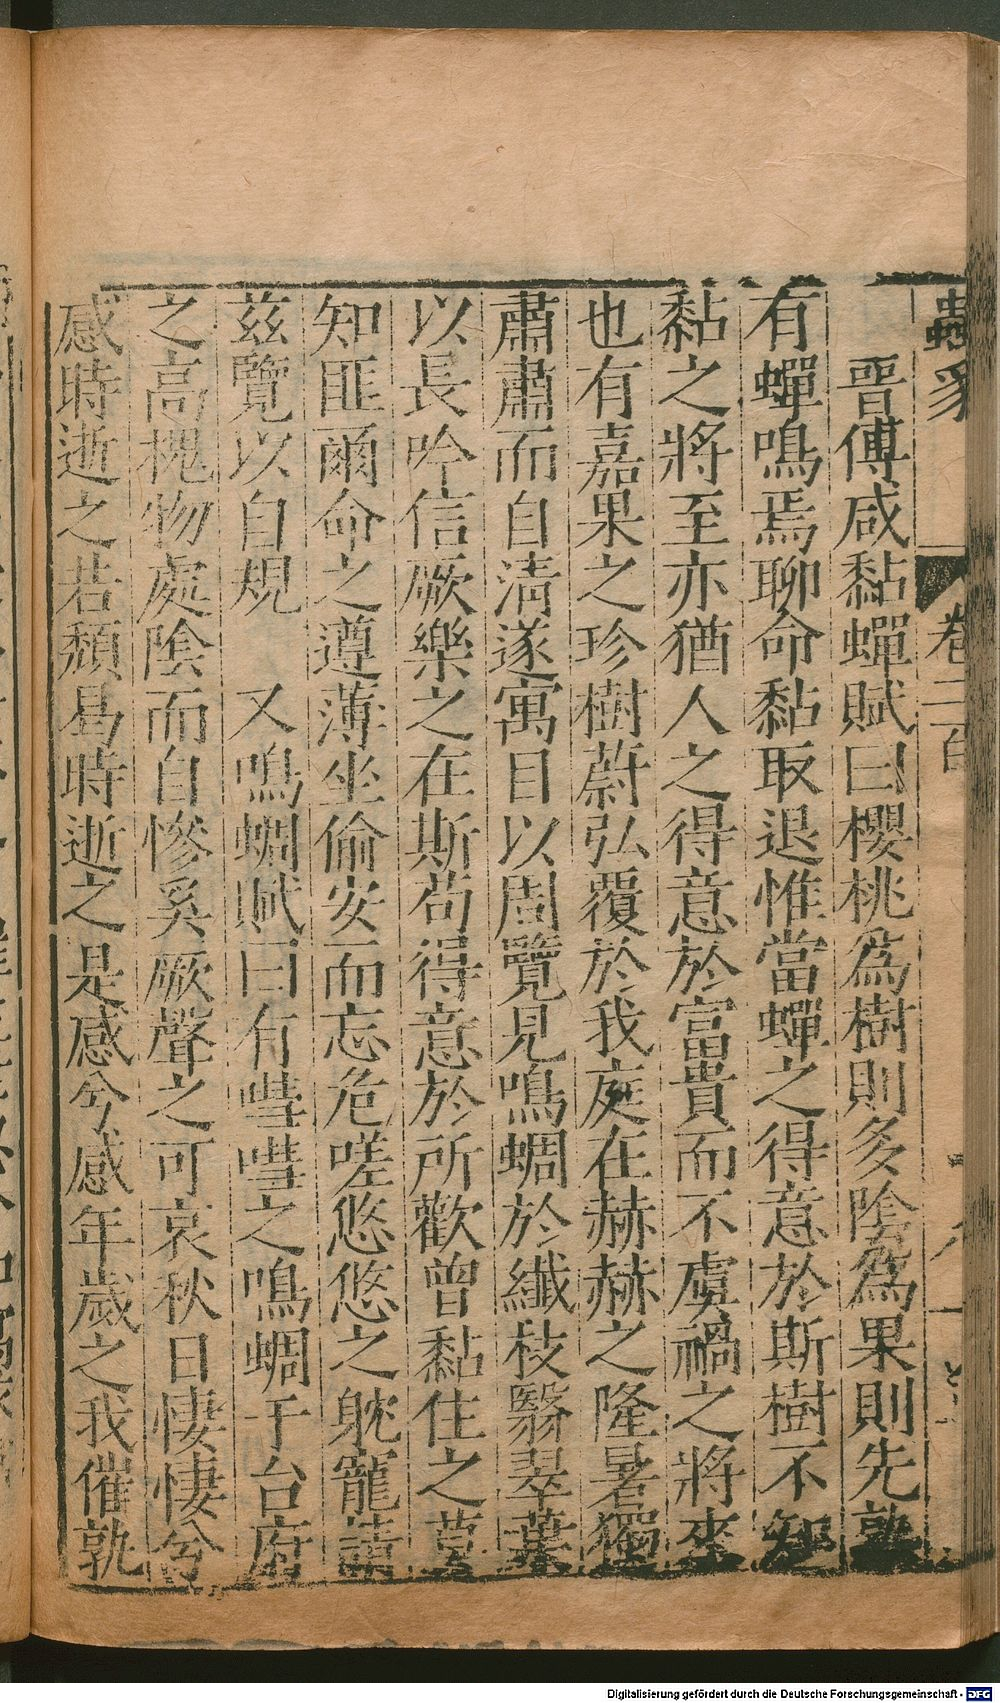 蟲豸
卷二百
晉傅咸黏蟬賦曰櫻桃爲樹則多陰爲果則先孰
有蟬鳴焉聊命黏取退惟當蟬之得意於斯樹不知
黏之將至亦猶人之得意於富貴而不虞禍之將來
也有嘉果之珍樹蔚弘覆於我庭在赫赫之隆暑獨
肅肅而自清遂寓目以周覽見鳴蜩於纖枝翳翠葉
以長吟信厥樂之在斯苟得意於所歡曾黏住之莫
知匪爾命之遵薄坐偷安而忘危嗟悠悠之躭寵請
茲覽以自規　又鳴蜩賦曰有嘒嘒之鳴蜩于台府
之高槐物處陰而自慘奚厥聲之可哀秋日悽悽兮
感時逝之若頹曷時逝之是感兮感年歲之我催孰
Digitalisierung gefördert durch die Deutsche Forschungsgemeinschaft - DFG